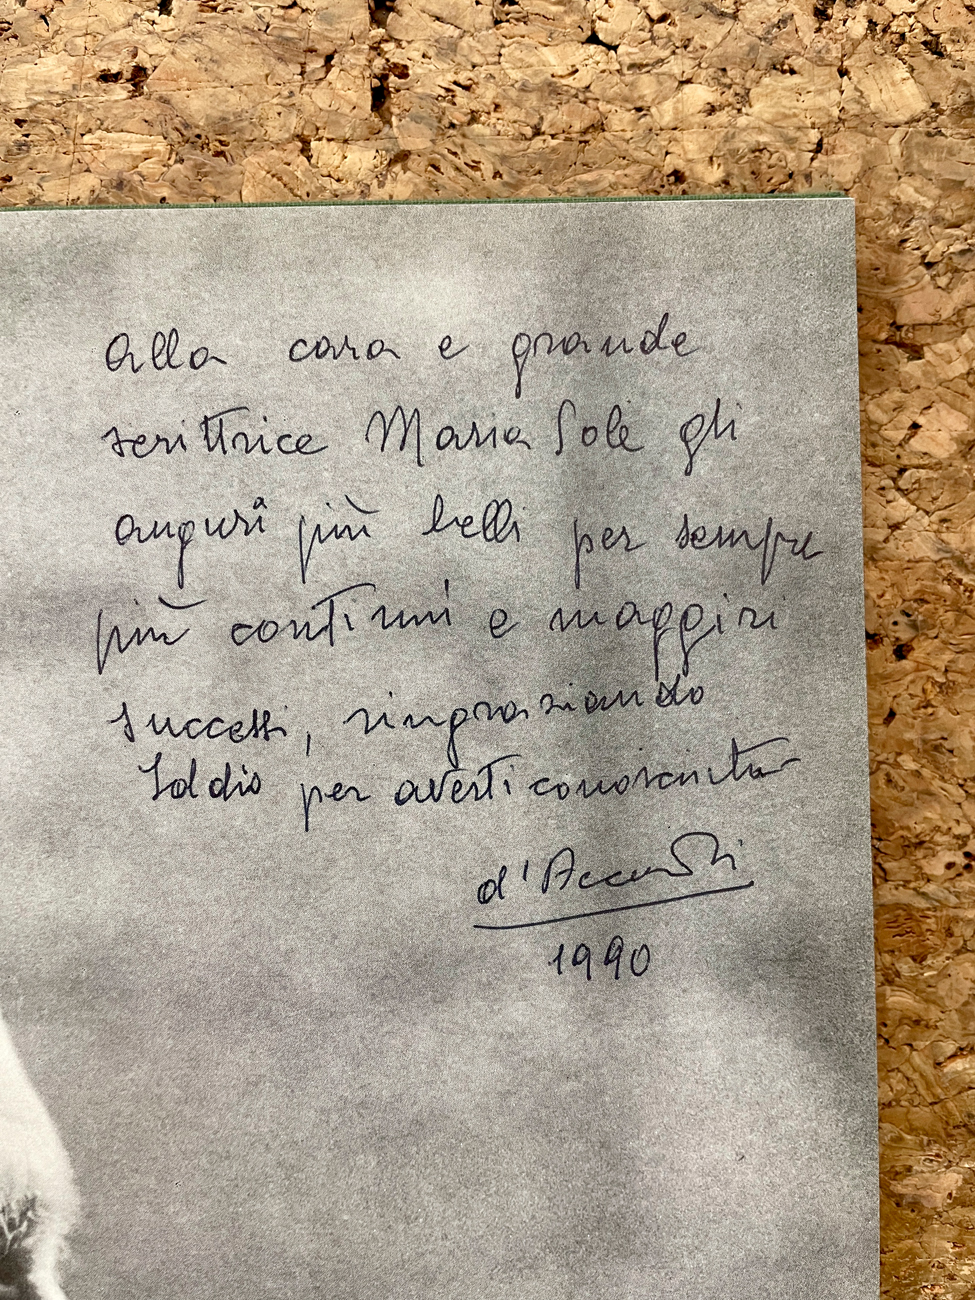 alla cara e grande
scrittrice Maria Sole gli
augurî più belli per sempre
più continui e maggiri
successi, ringraziando
Iddio per averti conosciuta
1990